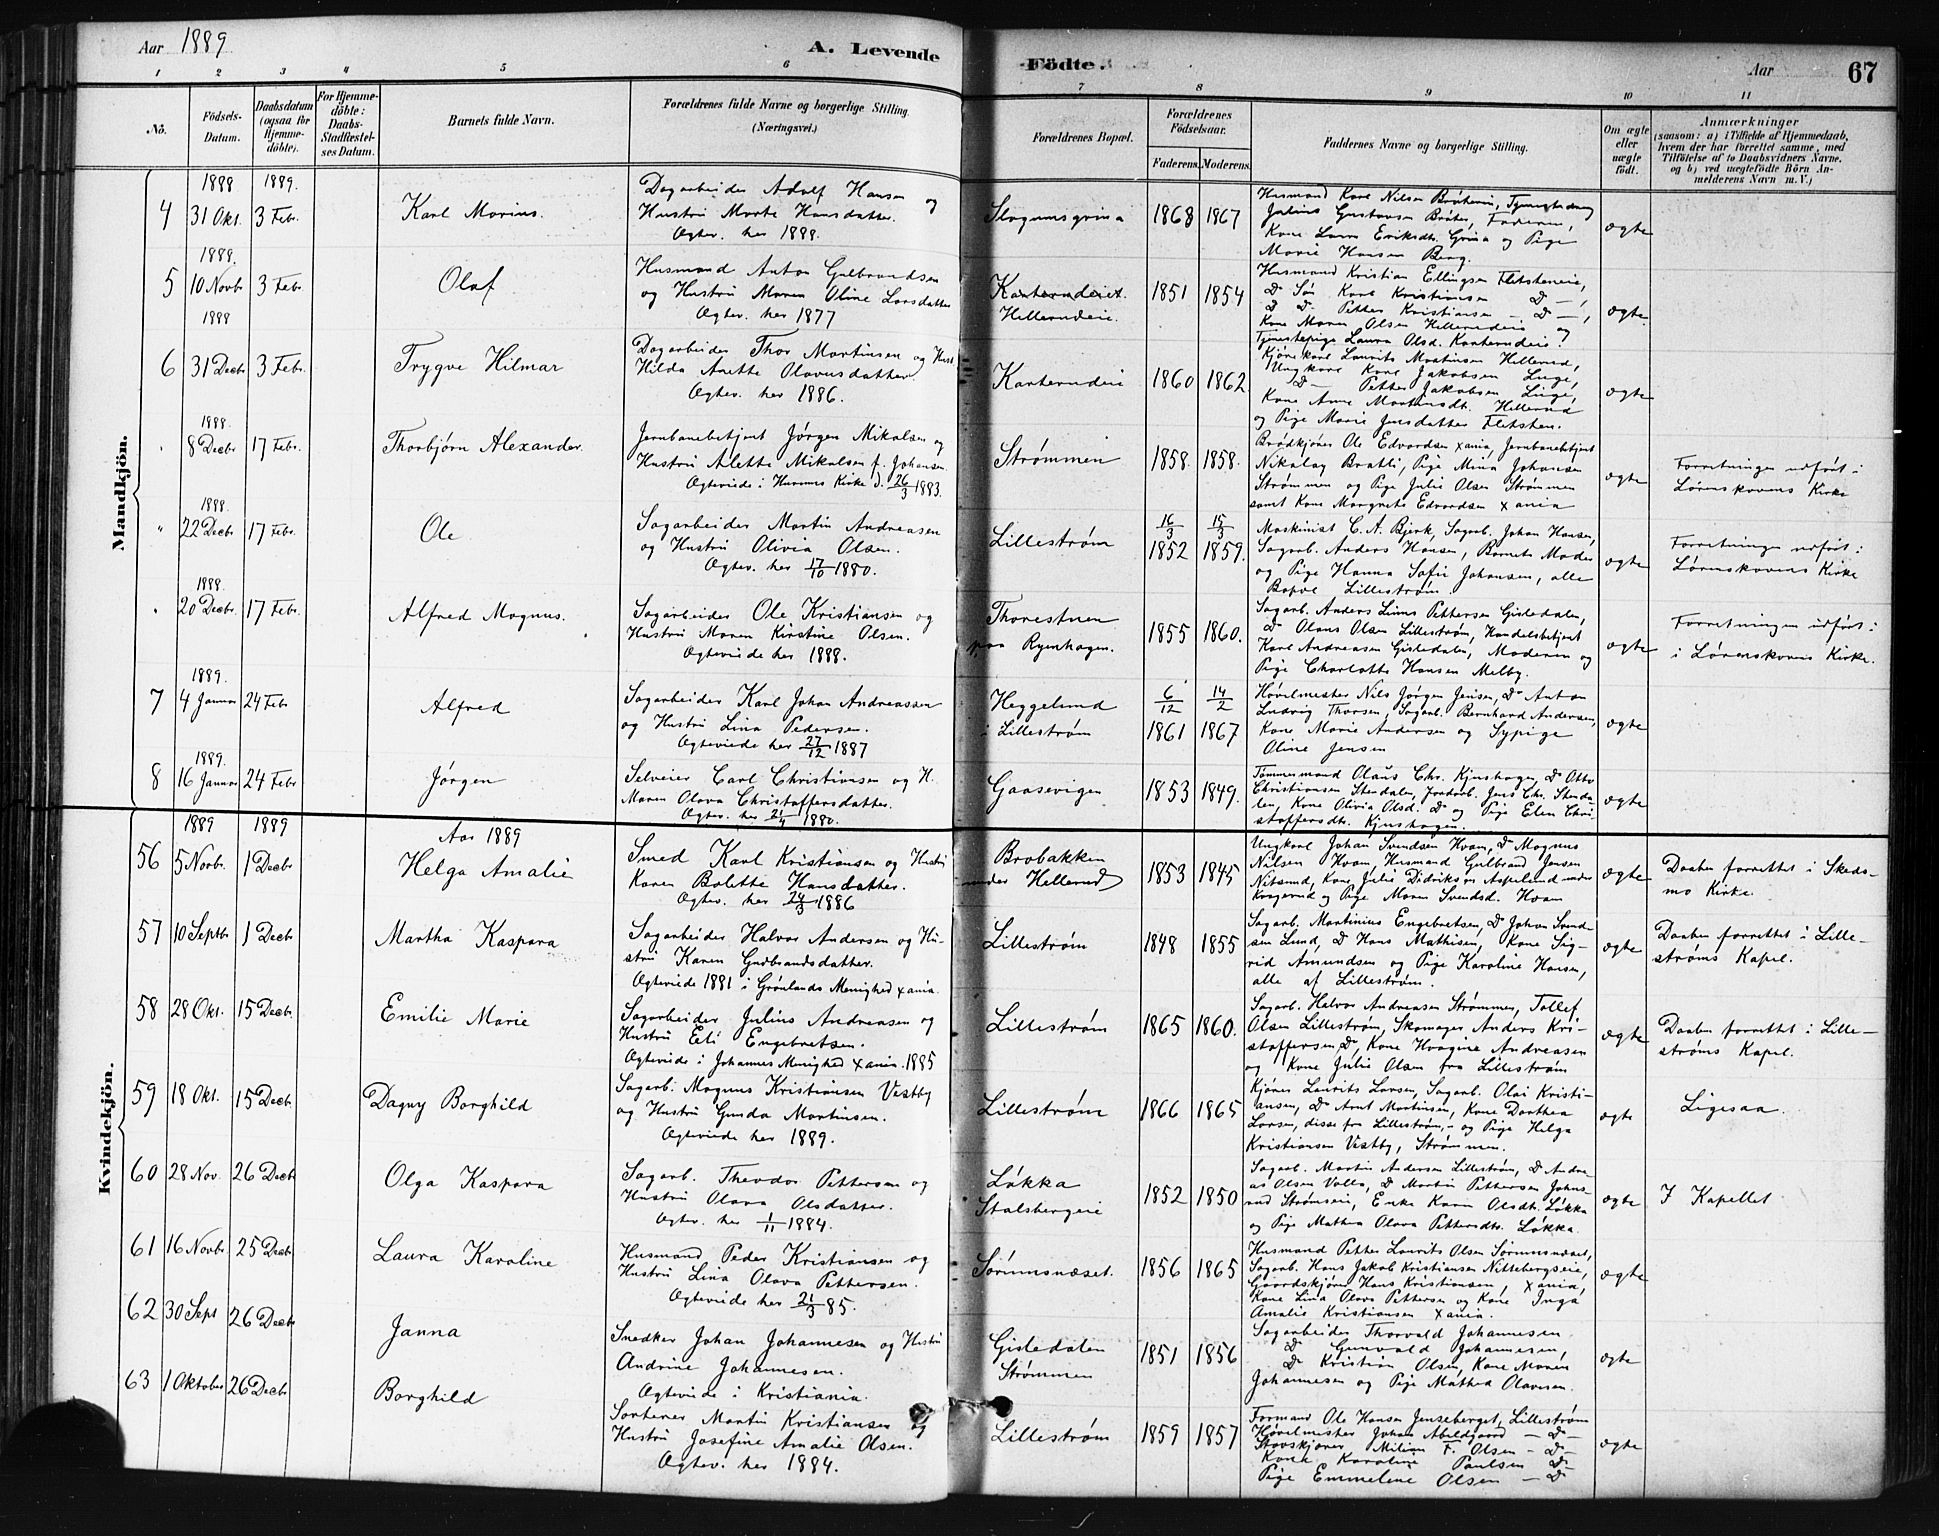 Aar 1889
A. Levende
Födte.
Aar
67
1 2 3 4 5 6 7 8 9 10 11
No.
Födsels-
Datum.
Daabsdatum
(ogsaa for
Hjemme-
döbte).
For Hjemme-
döbte:
Daabs-
Stadfæstel-
ses Datum.
Barnets fulde Navn.
Forældrenes fulde Navne og borgerlige Stilling.
(Næringsvei.)
Forældrenes Bopæl.
Forældrenes
Födselsaar.
Faderens. Moderens.
Faddernes Navne og borgerlige Stilling.
Om ægte
eller
uægte
födt.
Anmærkninger
(saasom: a) i Tilfælde af Hjemmedaab,
hvem der har forrettet samme, med
Tilföielse af to Daabsvidners Navne.
og b) ved uægtefödte Börn An-
melderens Navn m. V.)
Mandkjön.
1888 1889.
4 31 Okt. 3 Febr.
Karl Marius.
Dagarbeider Adolf Hansen og
Hustru Marte Hansdatter.
Ægtev. her 1888.
1868 1867
Husmand Karl Nilsen
Julius Gustavsen
og Pige
Marie Hansen Berg.
ægte
1888.
5 10 Novb. 3 Febr.
Olaf
Husmand Anton Gulbrandsen
og Hustru Maren Oline Larsdatter
Ægtev. her 1877
Hellerudeie.
1851 1854
Husmand Kristian Ellingsen
Dº Søn Karl Kristiansen — Dº —,
Dº Dº Petter Kristiansen — Dº —,
Kone Maren Olsen Hellerudeie og
Tjenestepige Laura Olsd.
ægte
1888
6 31 Decbr. 3 Febr.
Trygve Hilmar
Dagarbeider Thor Martinsen og Hust.
Hilda Anette Olavusdatter.
Ægtev. her 1886.
1860 1862
Kjørekarl Laurits Martinsen Hellerud,
Ungkarl Karl Jakobsen
Dº — Petter Jakobsen
Kone Anne Martinsdt. Hellerud
og Pige Marie Jensdatter
ægte
1888.
8 Decbr. 17 Febr.
Thorbjørn Alexander.
Jernbanebetjent Jørgen Mikalsen og
Hustru Alette Mikalsen f. Johansen.
Ægteviede i Kirke d. 26/3 1883.
Strømmen
1858. 1858.
Brødkjører Ole Edvardsen Xania, Jernbanebetjent
Nikolay Bratli, Pige Mina Johansen
Strømmen og Pige Julie Olsen Strømmen
samt Kone Margrete Edvardsen Xania
ægte
Forretningen udført i
Lørenskovens Kirke
1888.
" 22 Decbr. 17 Febr.
Ole
Sagarbeider Martin Andreasen
og Hustru Olivia Olsen.
Ægtev. her 17/10 1880.
Lillestrøm
16/3 1852 15/3 1859.
Maskinist C. A. Bjerk, Sagarb. Johan Hansen,
Sagarb. Anders Hansen, Barnets Moder
og Pige Hanna Sofie Johansen, alle
Bopæl Lillestrøm.
ægte
Forretningen udført i
Lørenskovens Kirke
1888.
" 20 Decbr. 17 Febr.
Alfred Magnus.
Sagarbeider Ole Kristiansen og
Hustru Maren Kirstine Olsen.
Ægteviede her 1888.
Thorestuen
paa Ryenhagen.
1855 1860.
Sagarb. Anders Linus Pettersen Gisledalen,
Dº Olaus Olsen Lillestrøm, Handelsbetjent
Karl Andreasen Gisledalen, Moderen og
Pige Charlotte Hansen Melby.
ægte
Forretningen udført i
i Lørenskovens Kirke.
1889.
7 4 Januar 24 Febr
Alfred
Sagarbeider Karl Johan Andreassen
og Hustru Lina Pedersen.
Ægteviede her 27/12 1887
Heggelund
i Lillestrøm
6/12 1861 14/2 1867
Høvelmester Nils Jørgen Jensen, Dº Anton
Ludvig Thorsen, Sagarb. Bernhard Andersen,
Kone Marie Andersen og Sypige
Oline Jensen
ægte
1889.
8 16 Januar 24 Febr
Jørgen
Selveier Carl Christiansen og H.
Maren Olava Christoffersdatter.
Ægtev. her 1880.
Gaasevigen
1853 1849.
Tømmermand Olaus Chr. Kjushagen, Dº Otto
Christiansen Stendalen, Jordarb. Jens Chr. Stenda-
len, Kone Olivia Olsd. Dº og Pige Elen Chri-
stoffersdt. Kjushagen.
ægte
Kvindekjön.
1889 1889
Aar 1889
56 5 Novb. 1 Decbr
Helga Amalie
Smed Karl Kristiansen og Hustru
Karen Bolette Hansdatter.
Ægtev. her 24/3 1886
Brobakken
under Hellerud
1853 1845
Ungkarl Johan Svendsen Hvam, Dº Magnus
Nilsen Hvam, Husmand Gulbrand Jensen
Nitsund, Kone Julie Didriksen Aspelund under
og Pige Maren Svendsd. Hvam
ægte
Daaben forrettet i Skeds-
mo Kirke.
57 10 Septbr 1 Decbr
Martha Kaspara
Sagarbeider Halvor Andersen og Hu-
stru Karen Gudbrandsdatter.
Ægteviede 1881 i Grønlands Menighed Xania.
Lillestrøm
1848 1855
Sagarb. Martinius Engebretsen, Dº Johan Svend-
sen Lund, Dº Hans Mathisen, Kone Sig-
rid Amundsen og Pige Karoline Hansen,
alle af Lillestrøm.
ægte
Daaben forrettet i Lille-
strøms Kapel.
58 28 Okt. 15 Decbr.
Emilie Marie
Sagarbeider Julius Andreasen og
Hustru Eli Engebretsen.
Ægteviede i Johannes Menighed Xania. 1885
Lillestrøm
1865 1860.
Sagarb. Halvor Andreasen Strømmen, Tollef
Olsen Lillestrøm, Skomager Anders Kri-
stoffersen Dº, Kone Andreasen
og Kone Julie Olsen fra Lillestrøm
ægte
Daaben forrettet i Lille-
strøms Kapel.
59 18 Okt. 15 Decbr
Dagny Borghild
Sagarb. Magnus Kristiansen Vestby
og Hustru Gunda Martinsen.
Ægteviede her 1889.
Lillestrøm
1866 1865
Kjører Laurits Larsen, Sagarb. Olai Kristi-
ansen, Dº Arnt Martinsen, Kone Dorthea
Larsen, disse fra Lillestrøm, – og Pige Helga
Kristiansen Vestby, Strømmen.
ægte
Ligesaa.
60 28 Nov. 26 Decbr
Olga Kaspara
Sagarb. Theodor Pettersen og
Hustru Olava Olsdatter.
Ægtev. her 1/11 1884.
Løkka
Stalsbergeie
1852 1850
Sagarb. Martin Andersen Lillestrøm, Dº Andre-
as Olsen Volla, Dº Martin Pettersen Johns-
rud Strømseie, Enke Karen Olsdt. Løkka
og Pige Mathea Olava Pettersdt. Løkka.
ægte
I Kapellet
61 16 Novbr. 25 Decbr
Laura Karoline
Husmand Peder Kristiansen og
Hustru Lina Olava Pettersen.
Ægteviede her 85.
Sørumsnæset.
1856 1865
Husmand Petter Laurits Olsen Sørumsnæset,
Sagarb. Hans Jakob Kristiansen Nittebergseie,
Gaardskjører Hans Kristiansen, Xania,
Kone Lina Olava Pettersen og Kone Inga
Amalie Kristiansen Xania.
ægte
62 30 Sept 26 Decbr
Janna
Snedker Johan Johannesen og Hustru
Andrine Johannesen.
Ægteviede i Kristiania.
Gisledalen
Strømmen
1851 1856
Sagarbeider Thorvald Johannesen,
Dº Gunvald Johannesen,
Dº Kristian Olsen, Kone Maren
Johannesen og Pige Mathea Olavesen.
ægte
63 1 Oktober 26 Decbr
Borghild
Sorterer Martin Kristiansen og
Hustru Josefine Amalie Olsen.
Ægtev. her 1884.
Lillestrøm
1859 1857
Formand Ole Hansen Jenseberget, Lillestrøm
Høvelmester Johan Abildgaard — Dº —
Stavskjører F. Olsen — Dº —
Kone Karoline Paulsen Dº —
Pige Emmelene Olsen — Dº
ægte